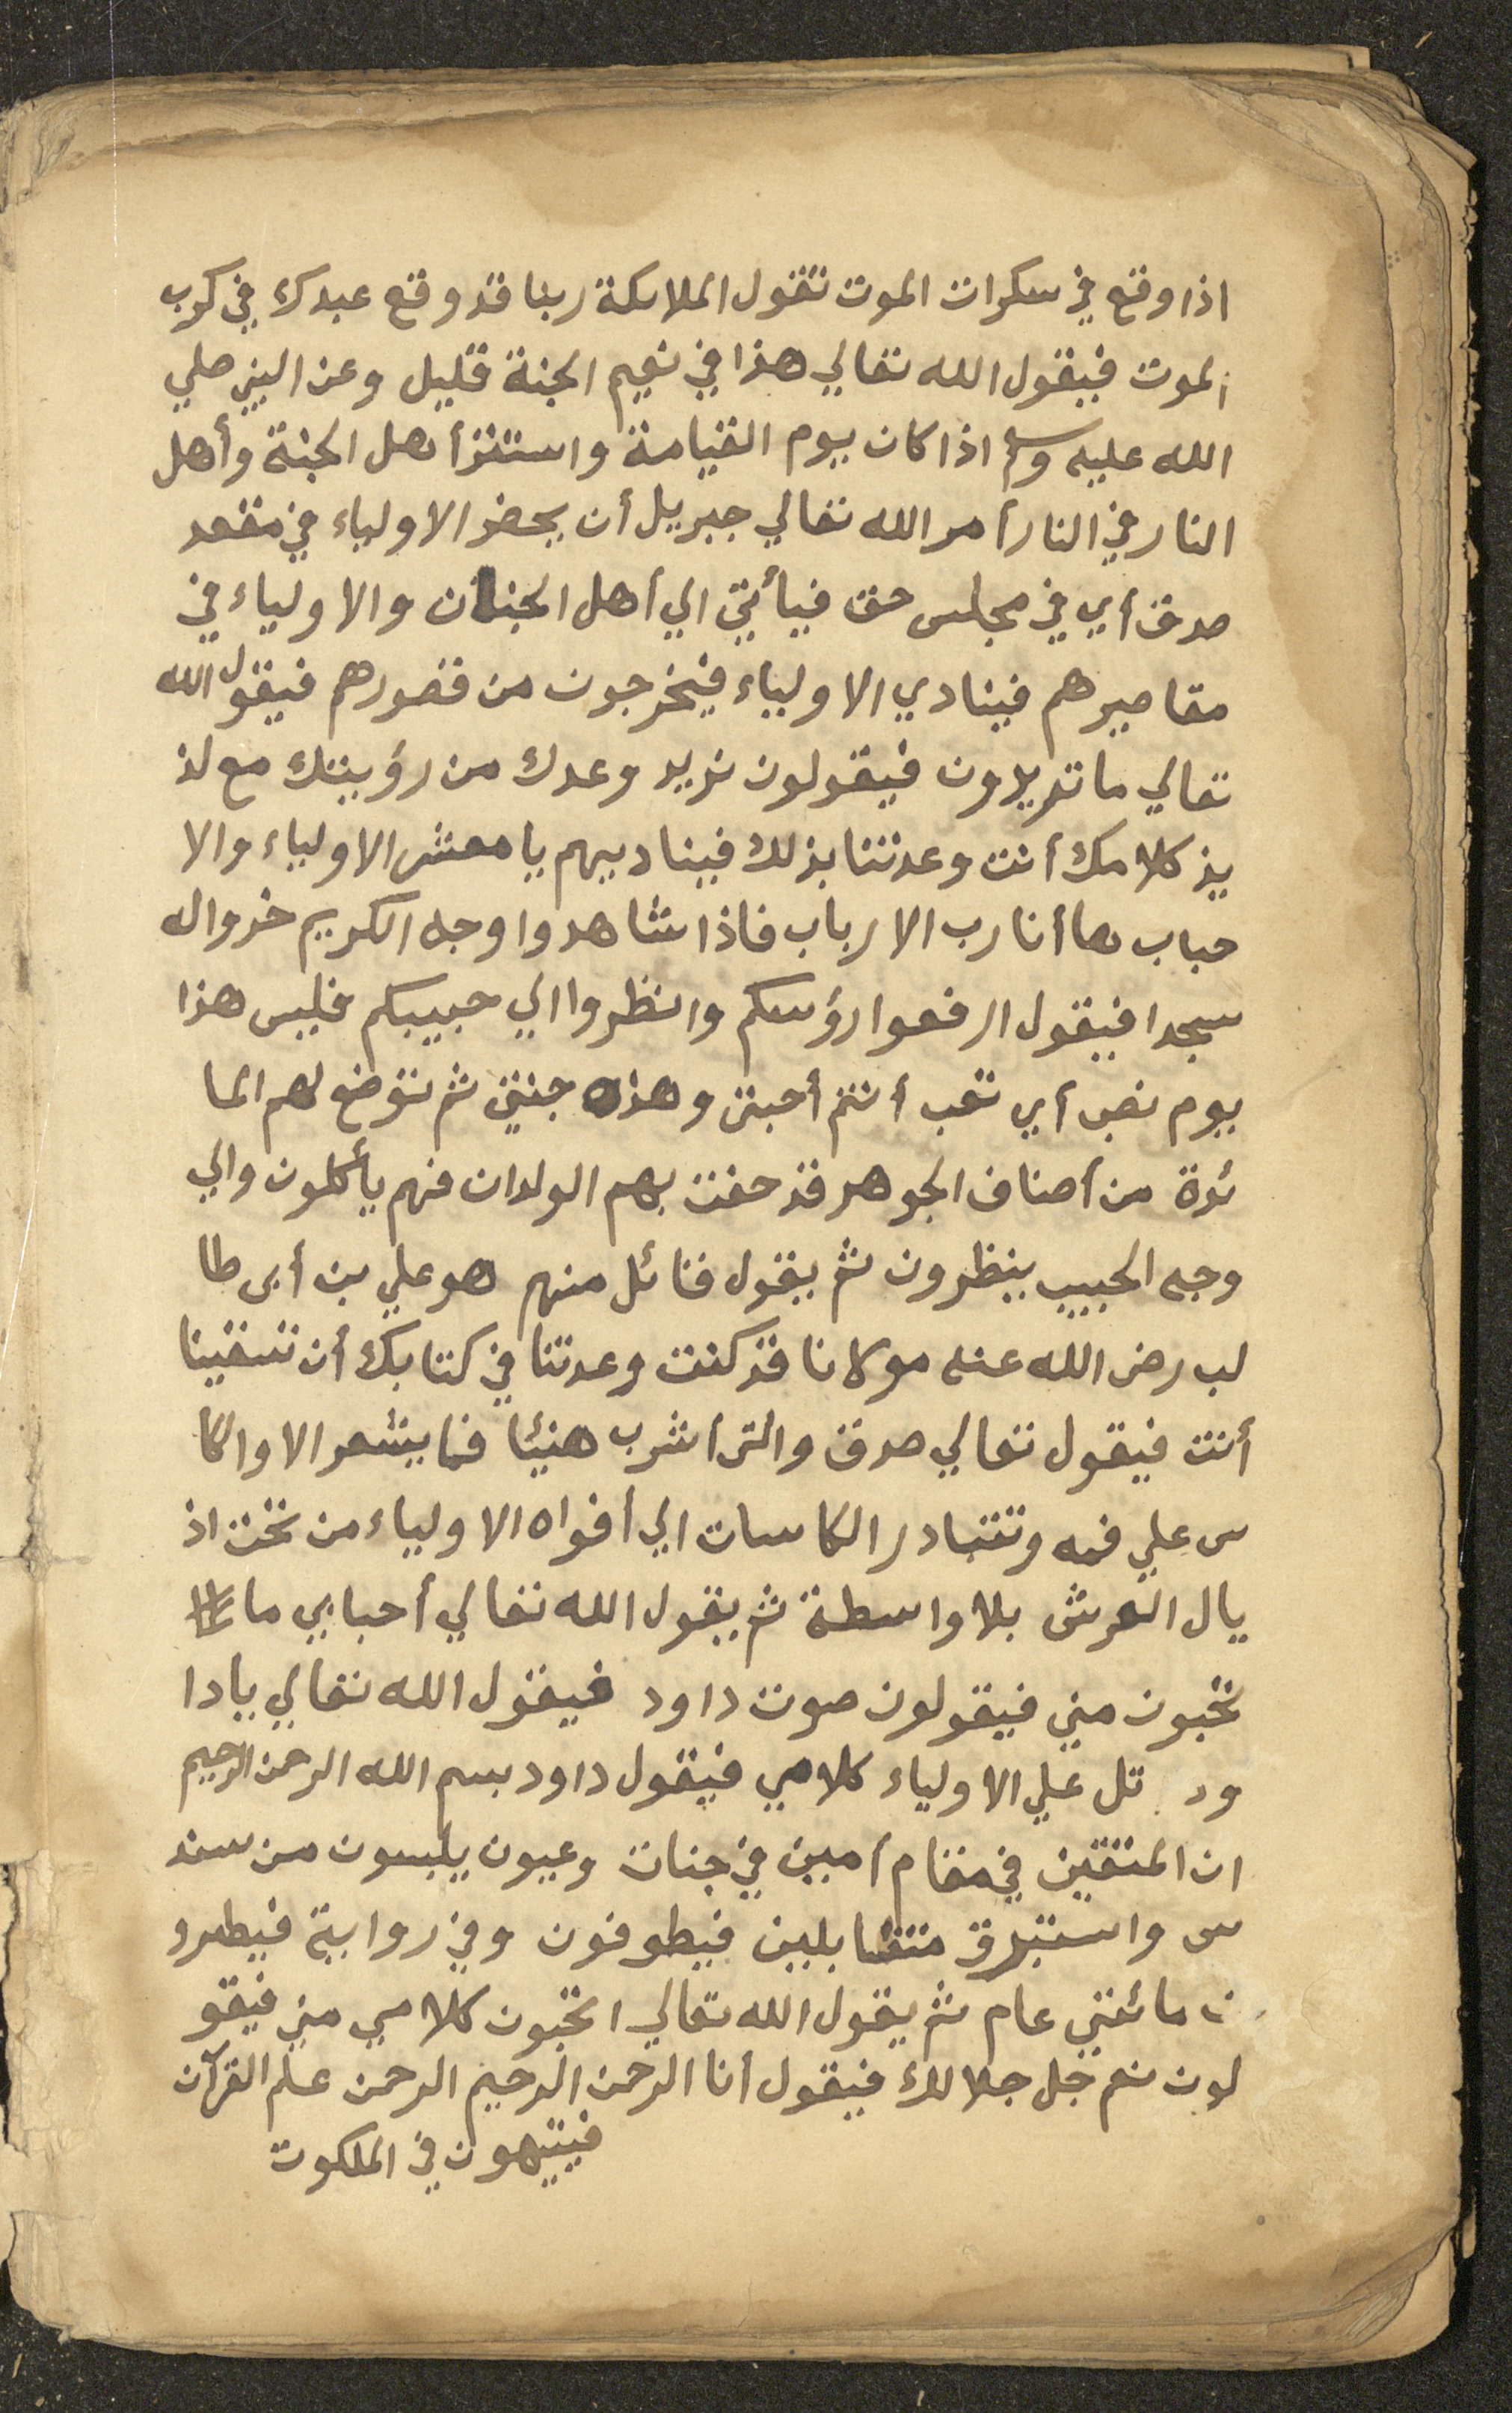 اذا وقع في سكرات الموت تقول الملائكة ربنا قد وقع عبدك في كرب
الموت فيقول الله تعالي هذا في نعيم الجنة قليل وعن النبي صلي
الله عليه وسلم اذا كان يوم القيامة واستقر أهل الجنة وأهل
النار في النار أمر الله تعالي جبريل أن يحضر الاولياء في مقعد
صدق أي في مجلس حق فيأتي الي أهل الجنان والاولياء في
مقاصيرهم فينادي الاولياء فيخرجون من قصورهم فيقول الله
تعالي ما تريدون فيقولون نريد وعدك من رؤيتك مع لذ
يذ كلامك أنت وعدتنا بذلك فيناديهم يا معشر الاولياء والا
حباب ها أنا رب الارباب فاذا شاهدوا وجه الكريم خروا له
سجدا فيقول ارفعوا رؤسكم وانظروا الي حبيبكم فليس هذا
يوم نصب أي تعب أنتم أحبتي وهذه جنتي ثم توضع لهم الما
ئدة من أصناف الجوهر قد حفت بهم الولدان فهم يأكلون والي
وجه الحبيب ينظرون ثم يقول قائل منهم هو علي بن أبى طا
لب رضى الله عنه مولانا قد كنت وعدتنا في كتابك أن تسقينا
أنت فيقول تعالي صدق والتى اشرب هنيئا فما يشعر الا والكا
س علي فمه وتتبادر الكاسات الي أفواه الاولياء من تحت اذ
يال العرش بلا واسطة ثم يقول الله تعالي أحبابي ما
تحبون مني فيقولون صوت داود فيقول الله تعالي يا دا
ود تل علي الاولياء كلامي فيقول داود بسم الله الرحمن الرحيم
ان المتقين في مقام أمين في جنات وعيون يلبسون من سند
س واستبرق متقابلين فيطوفون وفي رواية فيطيرو
ن مائتي عام ثم يقول الله تعالي اتحبون كلامي مني فيقو
لون نعم جل جلالك فيقول أنا الرحمن الرحيم الرحمن علم القرآن
فيتيهون في الملكوت